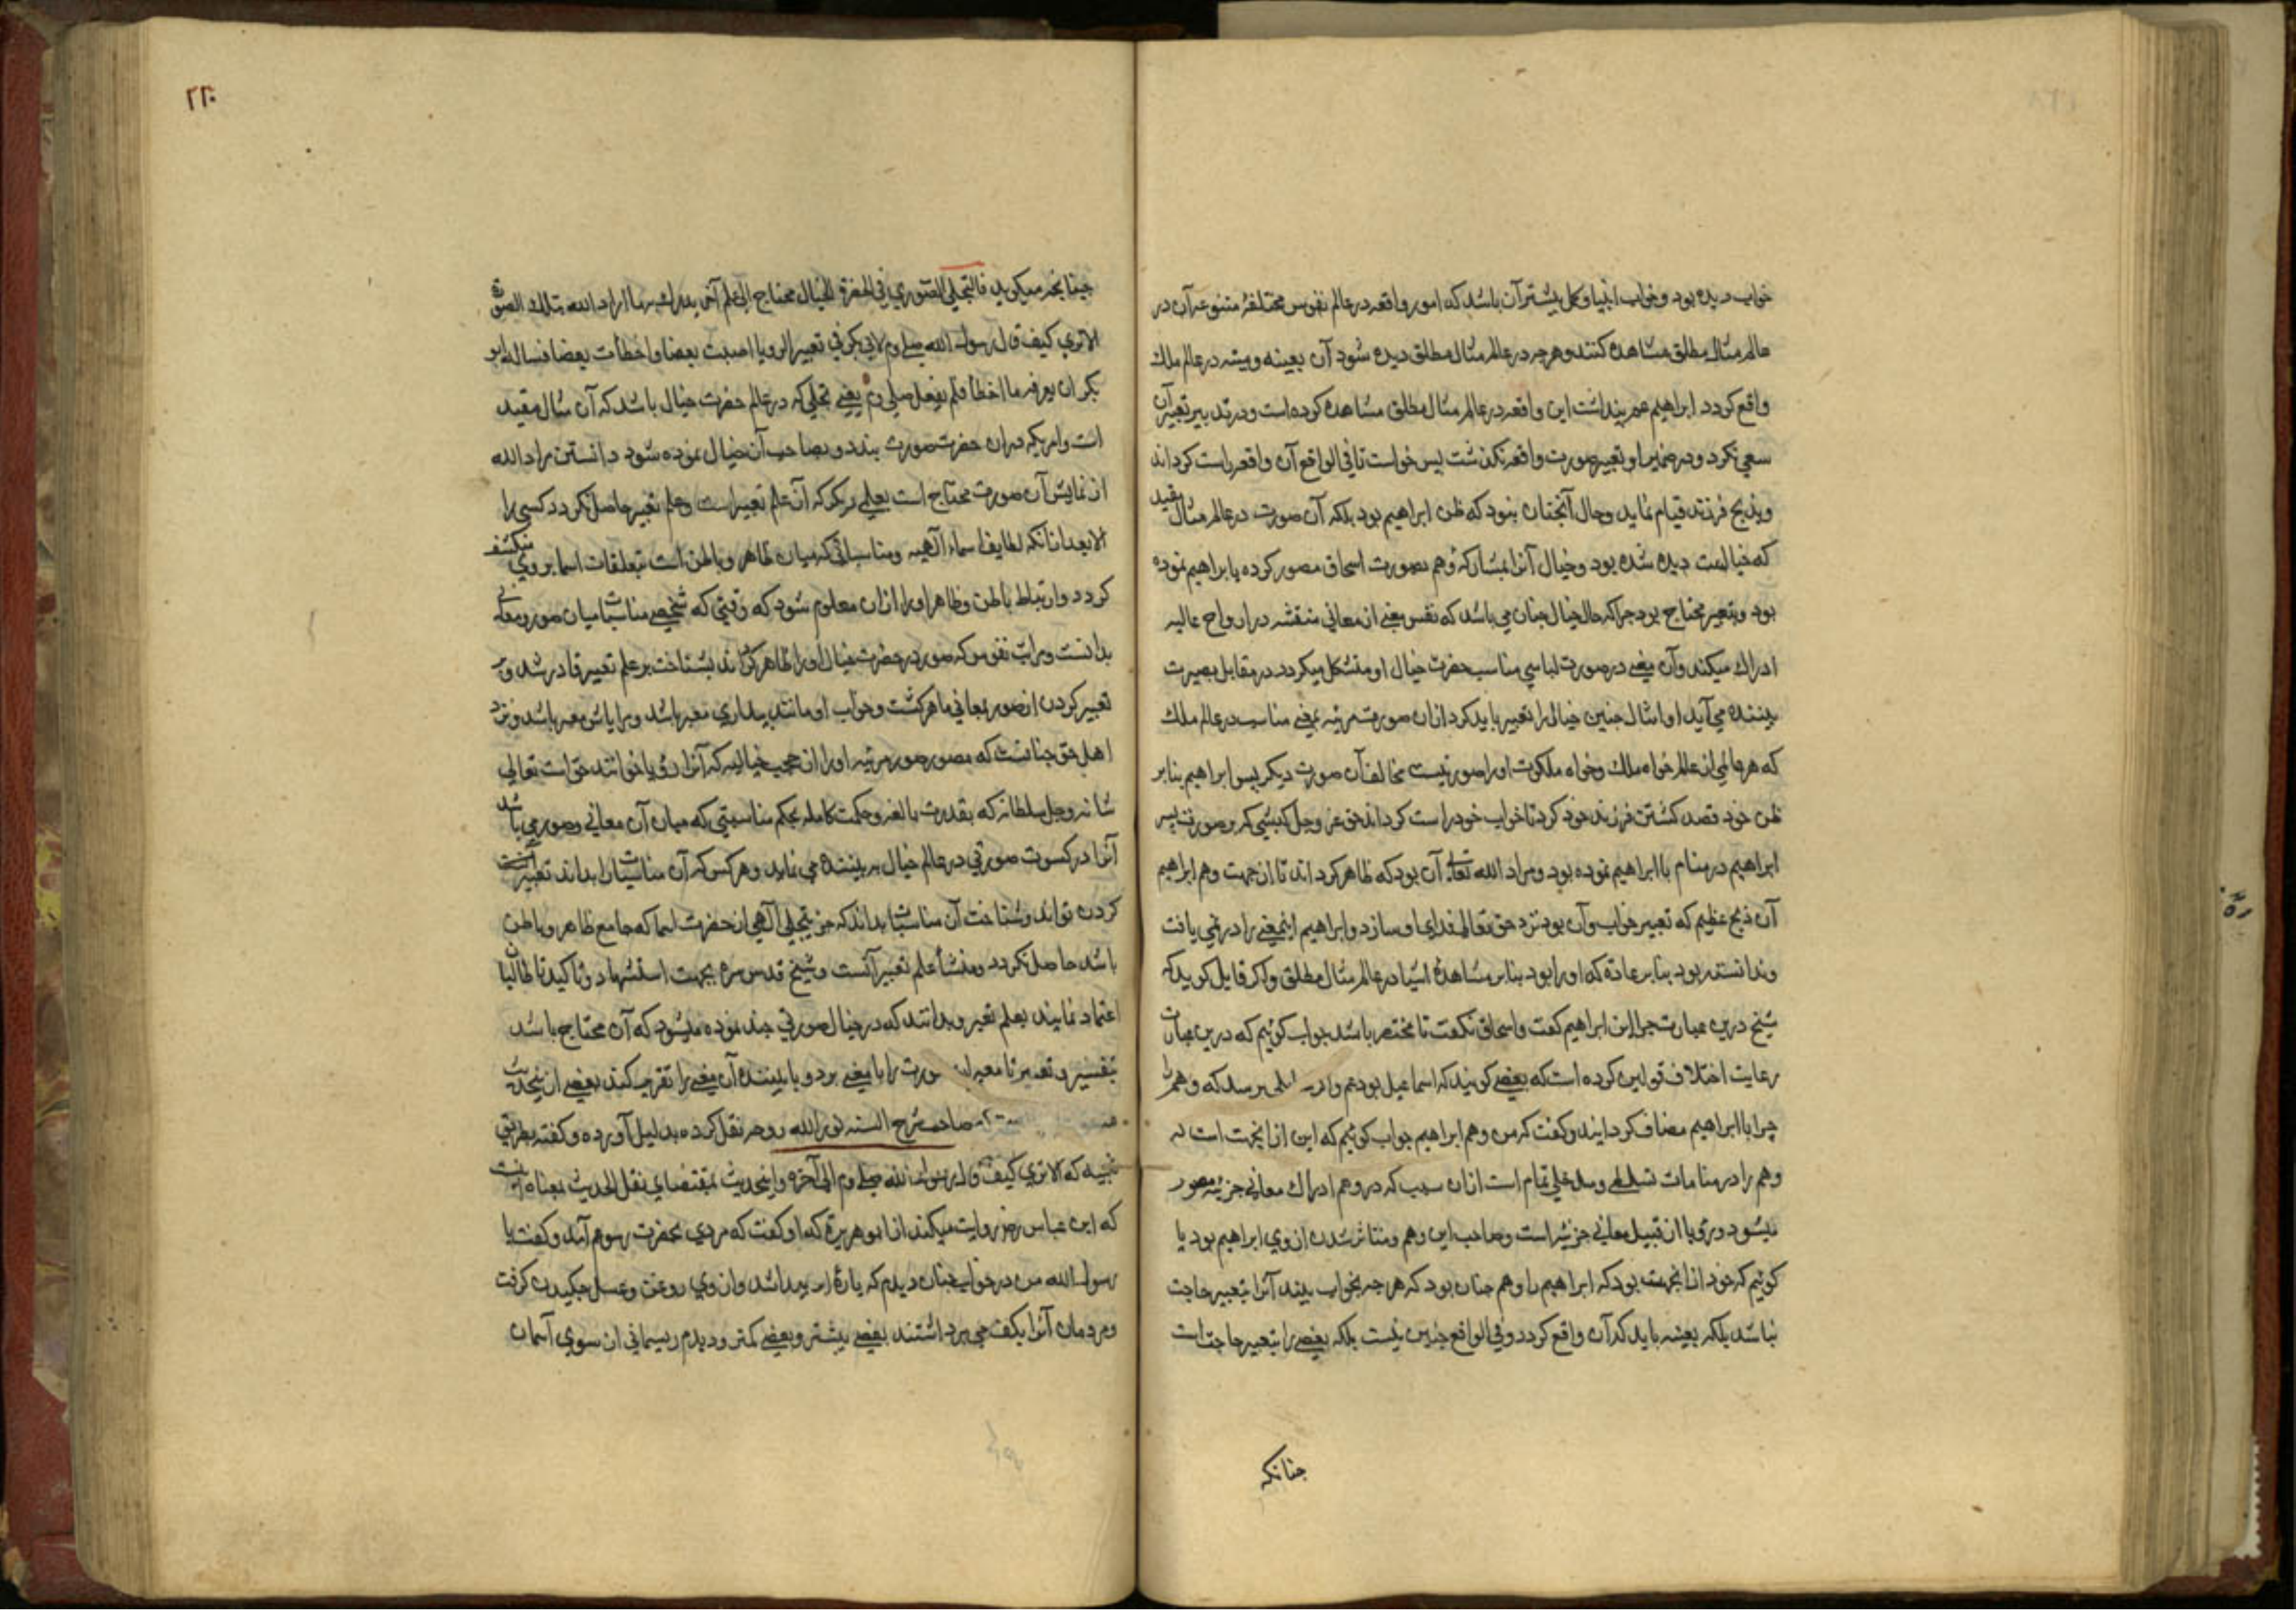 خواب دیده بود و خواب انبیا و کمل بیشتر آن باشد که امور واقعه در عالم نفوس مختلفهٔ متنوعه آن در
عالم مثال مطلق مشاهده کنند و هرچه در عالم مثال مطلق دیده شود آن بعینه و بیشه در عالم ملک
واقع کردد ابراهیم عم پنداشت این واقعه در عالم مثال مطلق مشاهده کرده است و در تدبیر تعبیر آن
سعی نکرد و در ضمایر او تعبیر صورت واقعه نکذشت پس خواست تا فی الواقع آن واقعه راست کرداند
و بذبح فرزند قیام نماید و حال آنچنان نبود که ظن ابراهیم بود بلکه آن صورت در عالم مثال مقید
که خیالست دیده شده بود و خیال آنرا بمشارکة وهم بصورت اسحاق مصور کرده بابراهیم نموده
بود و بتعبیر محتاج بود چراکه حال خیال چنان می باشد که نفس معنی از معانی منتقشه در ارواح عالیه
ادراک میکند و آن معنی در صورت لباسی مناسب حضرت خیال او متشکل میکردد در مقابل بصیرت
بیننده می آید او امثال چنین خیال را تعبیر باید کرد از آن صورت مرئیه بمعنی مناسب در عالم ملک
که هر عالمی از عالم خواه ملک و خواه ملکوت او را صورتیست مخالف آن صورت دیکر پس ابراهیم بنابر
ظن خود قصد کشتن فرزند خود کرد تا خواب خود راست کرداند حق عز وجل کبشی که بر صورت پسر
ابراهیم در منام با ابراهیم نموده بود و مراد الله تعالی آن بود که ظاهر کرداند تا از جهت وهم ابراهیم
آن ذبح عظیم که تعبیر خواب و آن بود نزد حق تعالی فدای او سازد و ابراهیم این معنی را در نمی یافت
و ندانسته بود بنابر عادة که او را بود بنابر مشاهدهٔ اشیا در عالم مثال مطلق و اکر قایل کوید که
شیخ درین عبارت چرا ابن ابراهیم کفت و اسحاق نکفت تا مختصر باشد جواب کوئیم که درین عبارت
رعایت اختلاف قولین کرده است که بعضی کویند که اسماعیل بود عم و اد برسد که وهم را
چرا با ابراهیم مضاف کردانیدند و کفت که من وهم ابراهیم جواب کوئیم که این از آنجهت است که
وهم را در منامات تسلطی و مدخلی تمام است از آن سبب که در وهم ادراک معانی جزئیه و صور
میشود و رؤیا از قبیل معانی جزئیه است و صاحب این وهم و متاثر شدن از وی ابراهیم بود یا
کوئیم که خود از آنجهت بود که ابراهیم را وهم چنان بود که هرچه بخواب بیند آنرا بتعبیر حاجت
نباشد بلکه بعینه باید که آن واقع کردد و فی الواقع چنین نیست بلکه بعضی را بتعبیر حاجت است
چنانکه
۲۲۰
چنانچه میکوید فالتجلی الصوری فی الحضرة الخیال محتاج الی علم آخر یدرک به ما اراد الله بتلک الصورة
الا تری کیف قال رسول الله صلی وم لابی بکر فی تعبیر الرویا اصبت بعضا و اخطأت بعضا فساله ابو
بکر ان یعرفه ما اخطأ فلم یفعل صلی وم یعنی تجلی که در عالم حضرت خیال باشد که آن مثال مقید
است و امریکه در آن حضرت صورت بندد و بصاحب آن خیال نموده شود دانستن مراد الله
از نمایش آن صورت محتاج است بعلمی دیکر که آن علم تعبیر است و علم تعبیر حاصل نکردد کسی را
الا بعد از آنکه لطایف اسماء الهیه و مناسباتی که میان ظاهر و باطن است بتعلقات اسما بر وی منکشف
کردد و ارتباط باطن و ظاهر او را از آن معلوم شود که وقتی که شخصی مناسبات میان صور و معانی
بدانست و مراتب نفوس که صور در حضرت خیال او را ظاهر کرداند بشناخت بر علم تعبیر قادر شد و بر
تعبیر کردن از صور بمعانی ماهر کشت و خواب او مانند بیداری معبر باشد و مرایاش معبر باشد و نزد
اهل حق چنانست که مصور صور مرئیه او را از حجب خیالیه که آنرا رؤیا خوانند حق است تعالی
شانه و جل سلطانه که بقدرت بالغه و حکمت کامله بحکم مناسبتی که میان آن معانی و صور می باشد
آنرا در کسوت صورتی در عالم خیال به بیننده می نماید و هر کس که آن مناسبات را بداند تعبیر آن
کردن تواند و شناخت آن مناسبات بداند که جز بتجلی الهی از حضرت اسما که جامع ظاهر و باطن
باشد حاصل نکردد و منشأ علم تعبیر آنست و شیخ قدس سره بجهت استشهاد و تاکید تا طالبان
اعتماد نمایند بعلم تعبیر و بدانند که در خیال صورتی چند نموده میشود که آن محتاج باشد
بتفسیر و تعبیر تا معبر آن صورت را با معنی برد و با بیننده آن معنی را تقریب کند بعضی از این حدیث
صاحب شرح السنه نور الله روحه نقل کرده بدلیل آورده و کفته بطریق
تنبیه که الا تری کیف قال رسول الله صلی وم الی آخره و اینحدیث بمقتضای نقل الحدیث بمعناه اینست
که ابن عباس رضی روایت میکند از ابو هریرة که او کفت که مردی بحضرت رسوم آمد و کفت یا
رسول الله من در خواب چنان دیدم که پارهٔ ابر پیدا شد و از وی روغن و عسل چکیدن کرفت
و مردمان آنرا بکف می برداشتند بعضی بیشتر و بعضی کمتر و دیدم ریسمانی از سوی آسمان